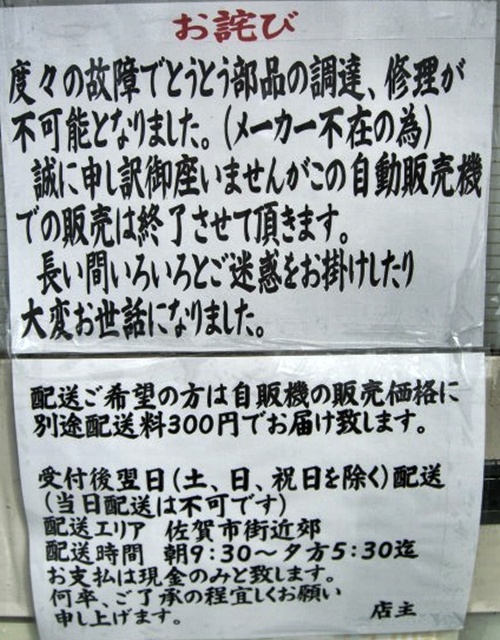 お詫び
度々の故障でとうとう部品の調達、修理が
不可能となりました。(メーカー不在の為)
誠に申し訳御座いませんがこの自動販売機
での販売は終了させて頂きます。
長い間いろいろとご迷惑をお掛けしたり
大変お世話になりました。
配送ご希望の方は自販機の販売価格に
別途配送料300円でお届け致します。
受付後翌日(土、日、祝日を除く)配送
(当日配送は不可です)
配送エリア 佐賀市街近郊
配送時間 朝9:30～夕方5:30迄
お支払は現金のみと致します。
何卒、ご了承の程宜しくお願い
申し上げます。 店主